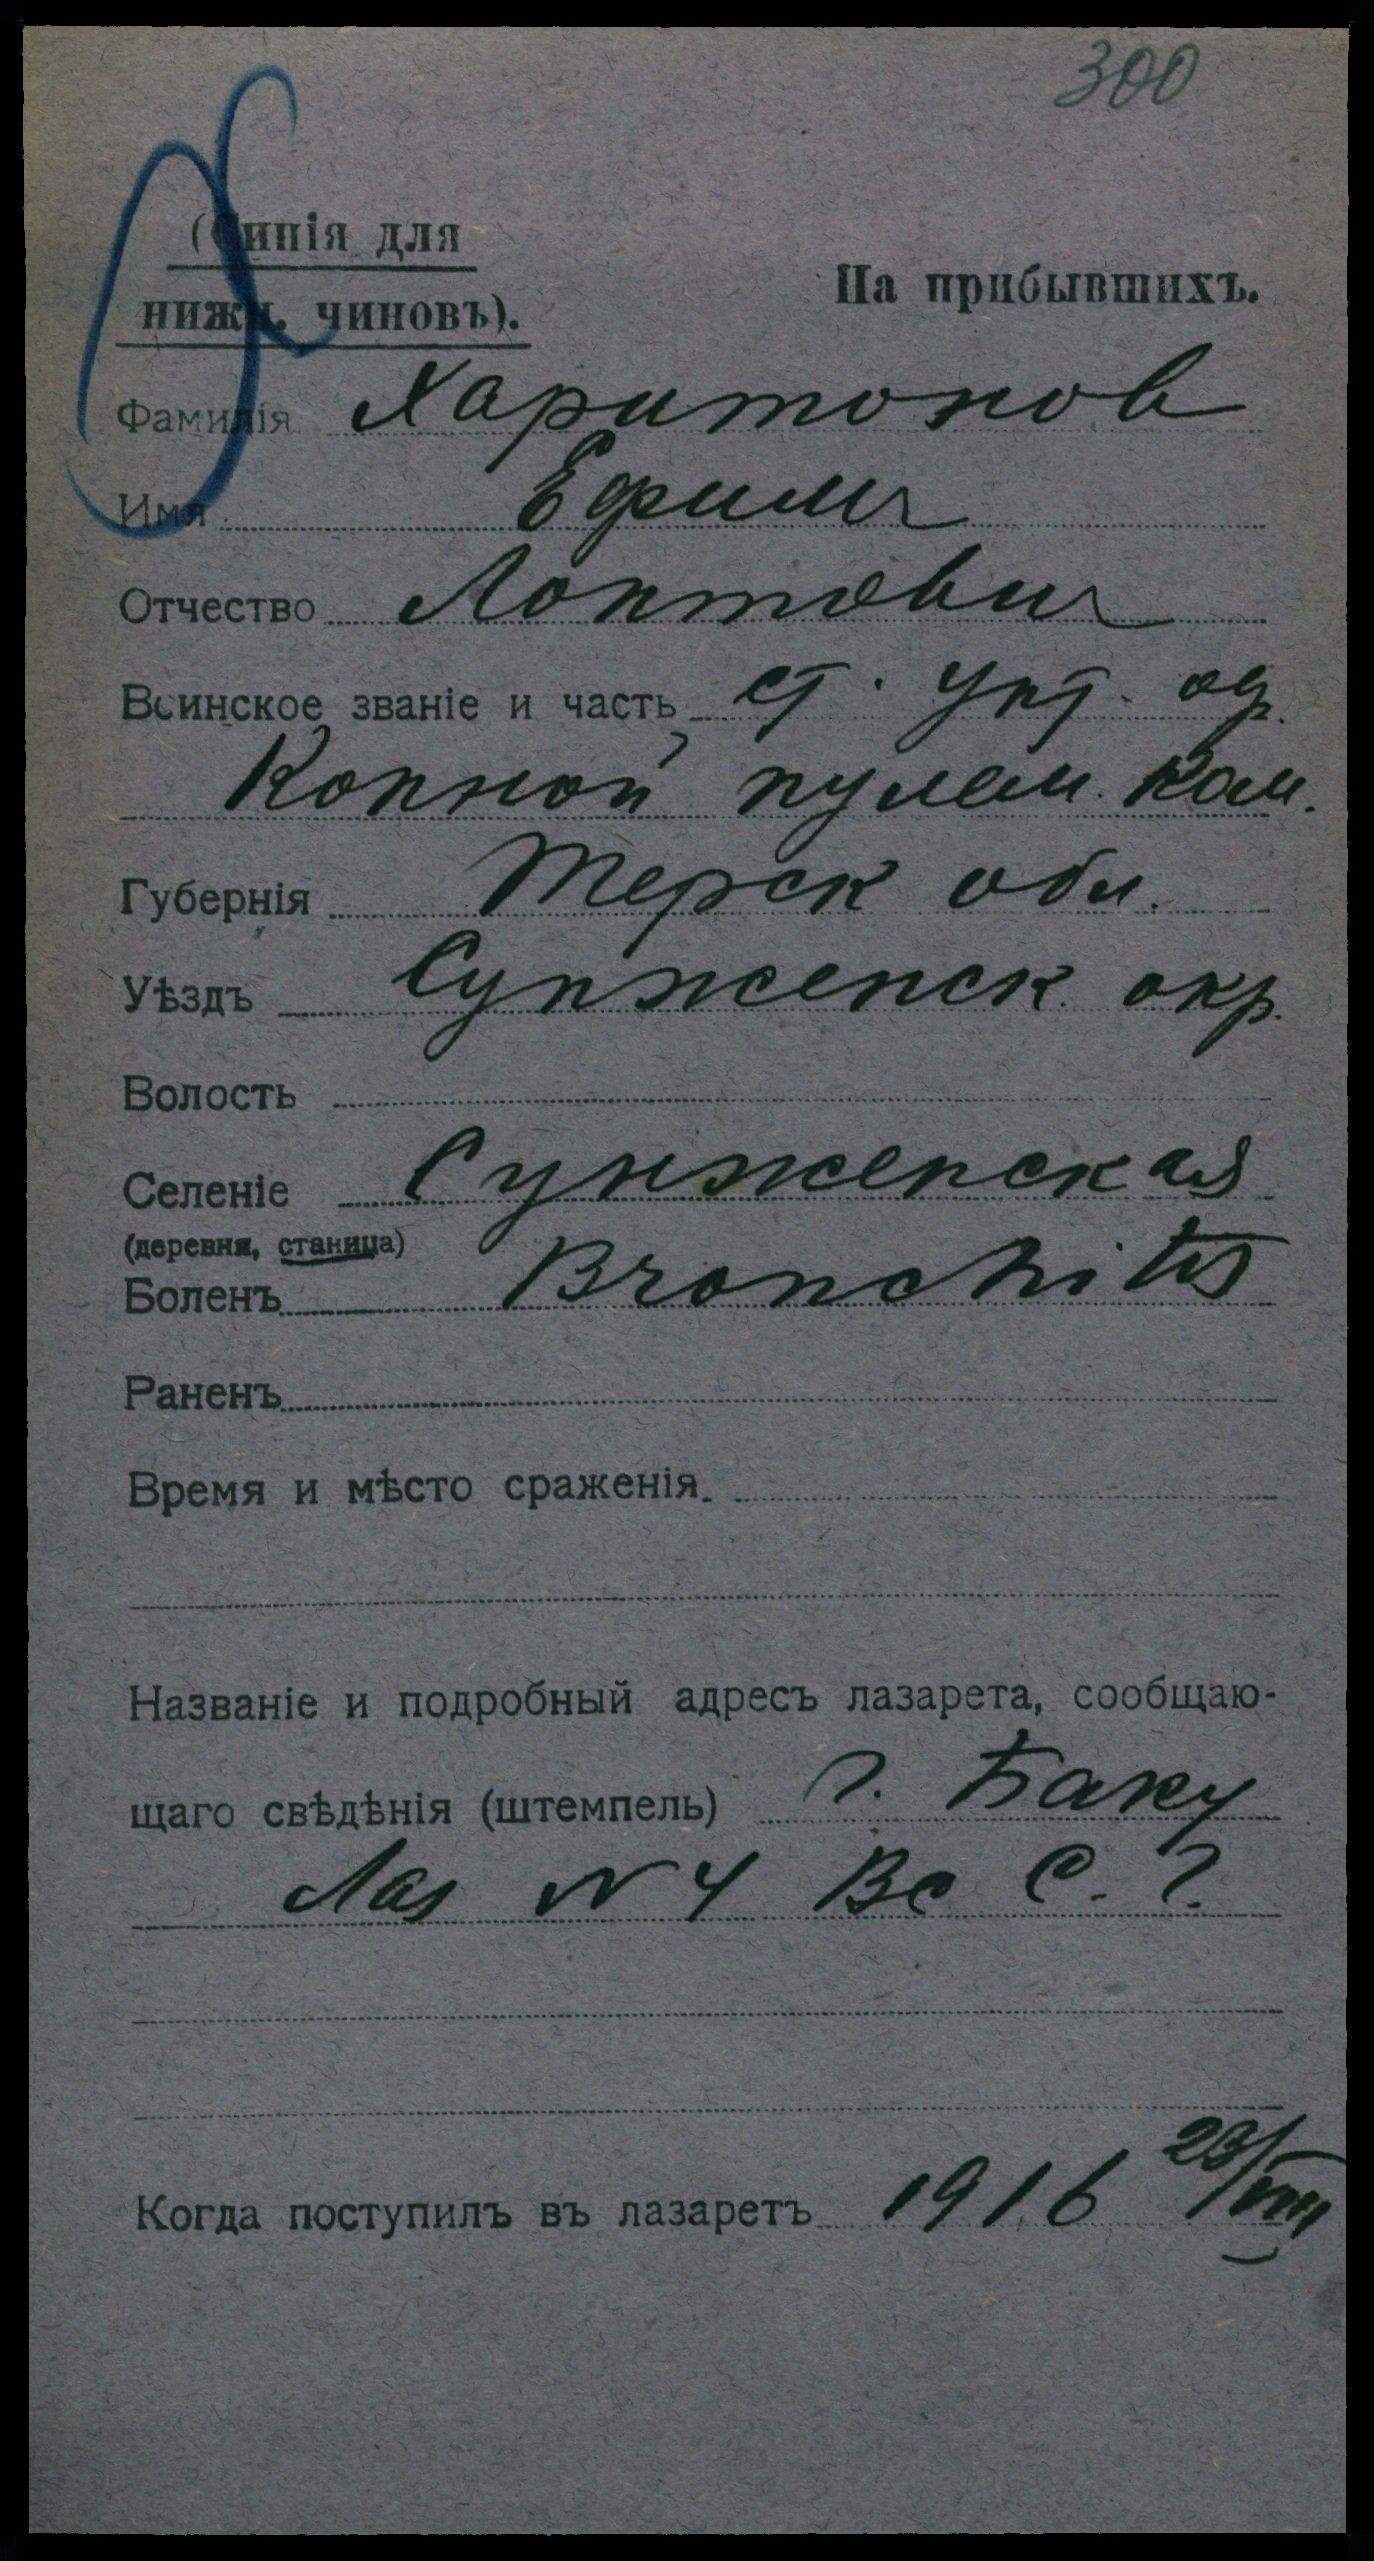 300
(Синія для
нижн. чиновъ).
На прибывшихъ.
Фамилія Харитонов
Имя Ефимъ
Отчество
Воинское званіе и часть ст. унт. оф.
Конной пулем. Ком.
Губернія Терск обл.
Уѣздъ Сунженск окр.
Волость
Селеніе Сунженская
(деревня, станица)
Боленъ Bronchitis
Раненъ
Время и мѣсто сраженія.
Названіе и подробный адресъ лазарета, сообщаю-
щаго свѣдѣнія (штемпель) г. Баку
Лаз N 4 Вс С. Г.
Когда поступилъ въ лазаретъ 1916 23/VIII